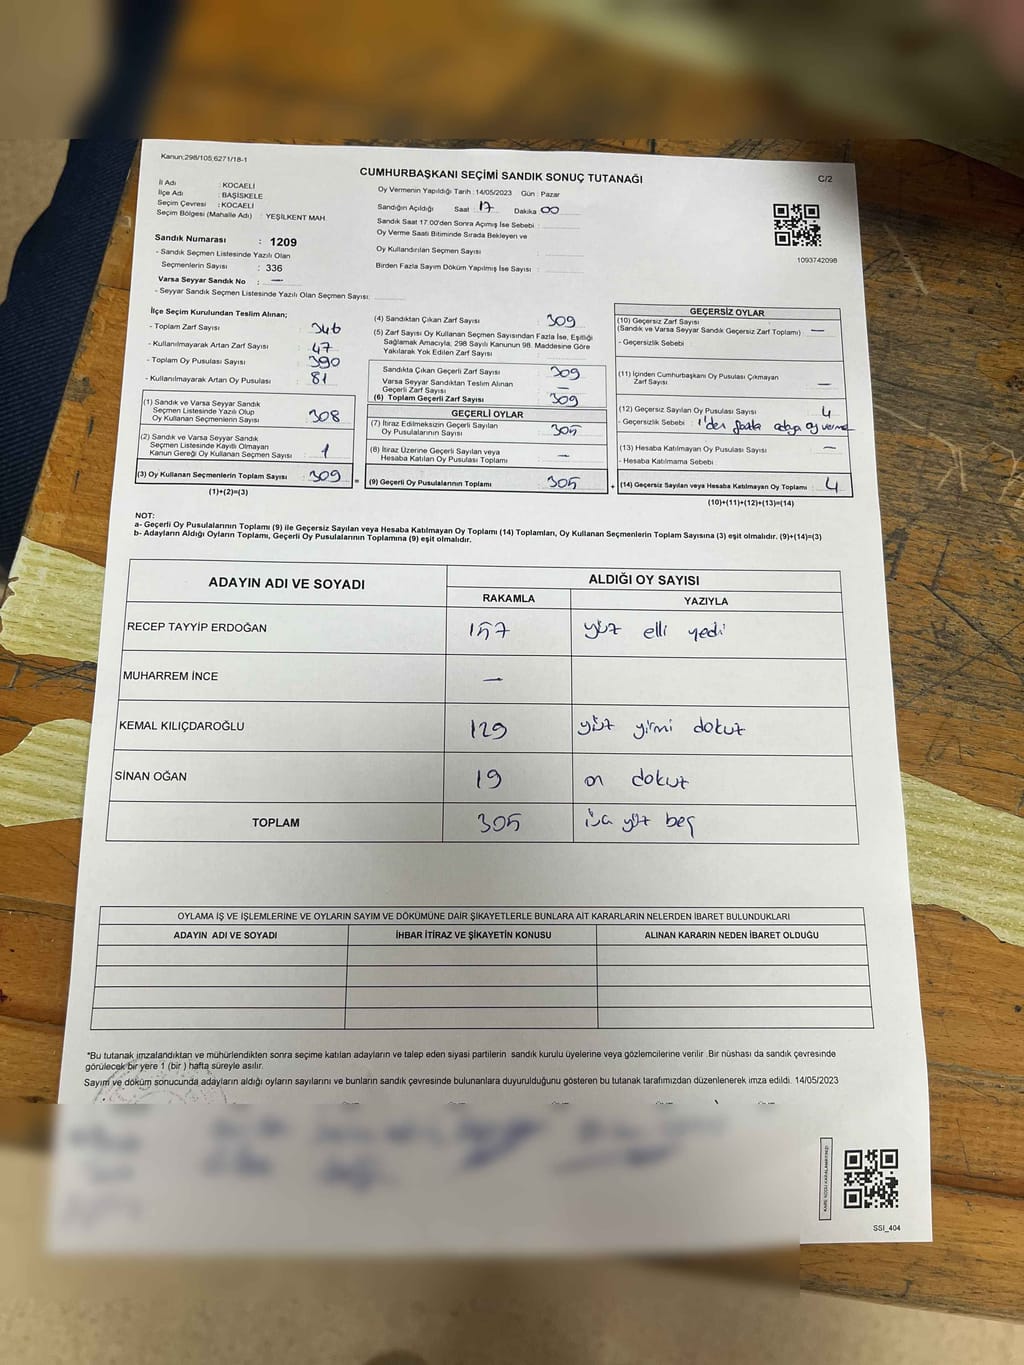 Kanun;298/105,6271/18-1
CUMHURBAŞKANI SEÇİMİ SANDIK SONUÇ TUTANAĞI
C/2
İl Adı : KOCAELİ
İlçe Adı : BAŞİSKELE
Seçim Çevresi : KOCAELİ
Seçim Bölgesi (Mahalle Adı) : YEŞİLKENT MAH.
Sandık Numarası : 1209
- Sandık Seçmen Listesinde Yazılı Olan
Seçmenlerin Sayısı : 336
Varsa Seyyar Sandık No : —
- Seyyar Sandık Seçmen Listesinde Yazılı Olan Seçmen Sayısı:
Oy Vermenin Yapıldığı Tarih : 14/05/2023 Gün : Pazar
Sandığın Açıldığı Saat : 17 Dakika 00
Sandık Saat 17.00'den Sonra Açımış İse Sebebi :
Oy Verme Saati Bitiminde Sırada Bekleyen ve
Oy Kullandırılan Seçmen Sayısı :
Birden Fazla Sayım Döküm Yapılmış İse Sayısı :
1093742098
İlçe Seçim Kurulundan Teslim Alınan;
- Toplam Zarf Sayısı : 346
- Kullanılmayarak Artan Zarf Sayısı : 47
- Toplam Oy Pusulası Sayısı : 390
- Kullanılmayarak Artan Oy Pusulası : 81
(1) Sandık ve Varsa Seyyar Sandık
Seçmen Listesinde Yazılı Olup
Oy Kullanan Seçmenlerin Sayısı : 308
(2) Sandık ve Varsa Seyyar Sandık
Seçmen Listesinde Kayıtlı Olmayan
Kanun Gereği Oy Kullanan Seçmen Sayısı : 1
(3) Oy Kullanan Seçmenlerin Toplam Sayısı : 309
(1)+(2)=(3)
(4) Sandıktan Çıkan Zarf Sayısı : 309
(5) Zarf Sayısı Oy Kullanan Seçmen Sayısından Fazla İse, Eşitliği
Sağlamak Amacıyla, 298 Sayılı Kanunun 98. Maddesine Göre
Yakılarak Yok Edilen Zarf Sayısı :
Sandıkta Çıkan Geçerli Zarf Sayısı : 309
Varsa Seyyar Sandıktan Teslim Alınan
Geçerli Zarf Sayısı : —
(6) Toplam Geçerli Zarf Sayısı : 309
GEÇERLİ OYLAR
(7) İtiraz Edilmeksizin Geçerli Sayılan
Oy Pusulalarının Sayısı : 305
(8) İtiraz Üzerine Geçerli Sayılan veya
Hesaba Katılan Oy Pusulası Toplamı : —
= (9) Geçerli Oy Pusulalarının Toplamı : 305
GEÇERSİZ OYLAR
(10) Geçersiz Zarf Sayısı
(Sandık ve Varsa Seyyar Sandık Geçersiz Zarf Toplamı) : —
- Geçersizlik Sebebi :
(11) İçinden Cumhurbaşkanı Oy Pusulası Çıkmayan
Zarf Sayısı : —
(12) Geçersiz Sayılan Oy Pusulası Sayısı : 4
- Geçersizlik Sebebi : 1'den fazla adaya oy verme
(13) Hesaba Katılmayan Oy Pusulası Sayısı : —
- Hesaba Katılmama Sebebi :
+ (14) Geçersiz Sayılan veya Hesaba Katılmayan Oy Toplamı : 4
(10)+(11)+(12)+(13)=(14)
NOT:
a- Geçerli Oy Pusulalarının Toplamı (9) ile Geçersiz Sayılan veya Hesaba Katılmayan Oy Toplamı (14) Toplamları, Oy Kullanan Seçmenlerin Toplam Sayısına (3) eşit olmalıdır. (9)+(14)=(3)
b- Adayların Aldığı Oyların Toplamı, Geçerli Oy Pusulalarının Toplamına (9) eşit olmalıdır.
ADAYIN ADI VE SOYADI ALDIĞI OY SAYISI
RAKAMLA YAZIYLA
RECEP TAYYİP ERDOĞAN 157 yüz elli yedi
MUHARREM İNCE —
KEMAL KILIÇDAROĞLU 129 yüz yirmi dokuz
SİNAN OĞAN 19 on dokuz
TOPLAM 305 üç yüz beş
OYLAMA İŞ VE İŞLEMLERİNE VE OYLARIN SAYIM VE DÖKÜMÜNE DAİR ŞİKAYETLERLE BUNLARA AİT KARARLARIN NELERDEN İBARET BULUNDUKLARI
ADAYIN ADI VE SOYADI İHBAR İTİRAZ VE ŞİKAYETİN KONUSU ALINAN KARARIN NEDEN İBARET OLDUĞU
*Bu tutanak imzalandıktan ve mühürlendikten sonra seçime katılan adayların ve talep eden siyasi partilerin sandık kurulu üyelerine veya gözlemcilerine verilir .Bir nüshası da sandık çevresinde
görülecek bir yere 1 (bir ) hafta süreyle asılır.
Sayım ve döküm sonucunda adayların aldığı oyların sayılarını ve bunların sandık çevresinde bulunanlara duyurulduğunu gösteren bu tutanak tarafımızdan düzenlenerek imza edildi. 14/05/2023
SSI_404